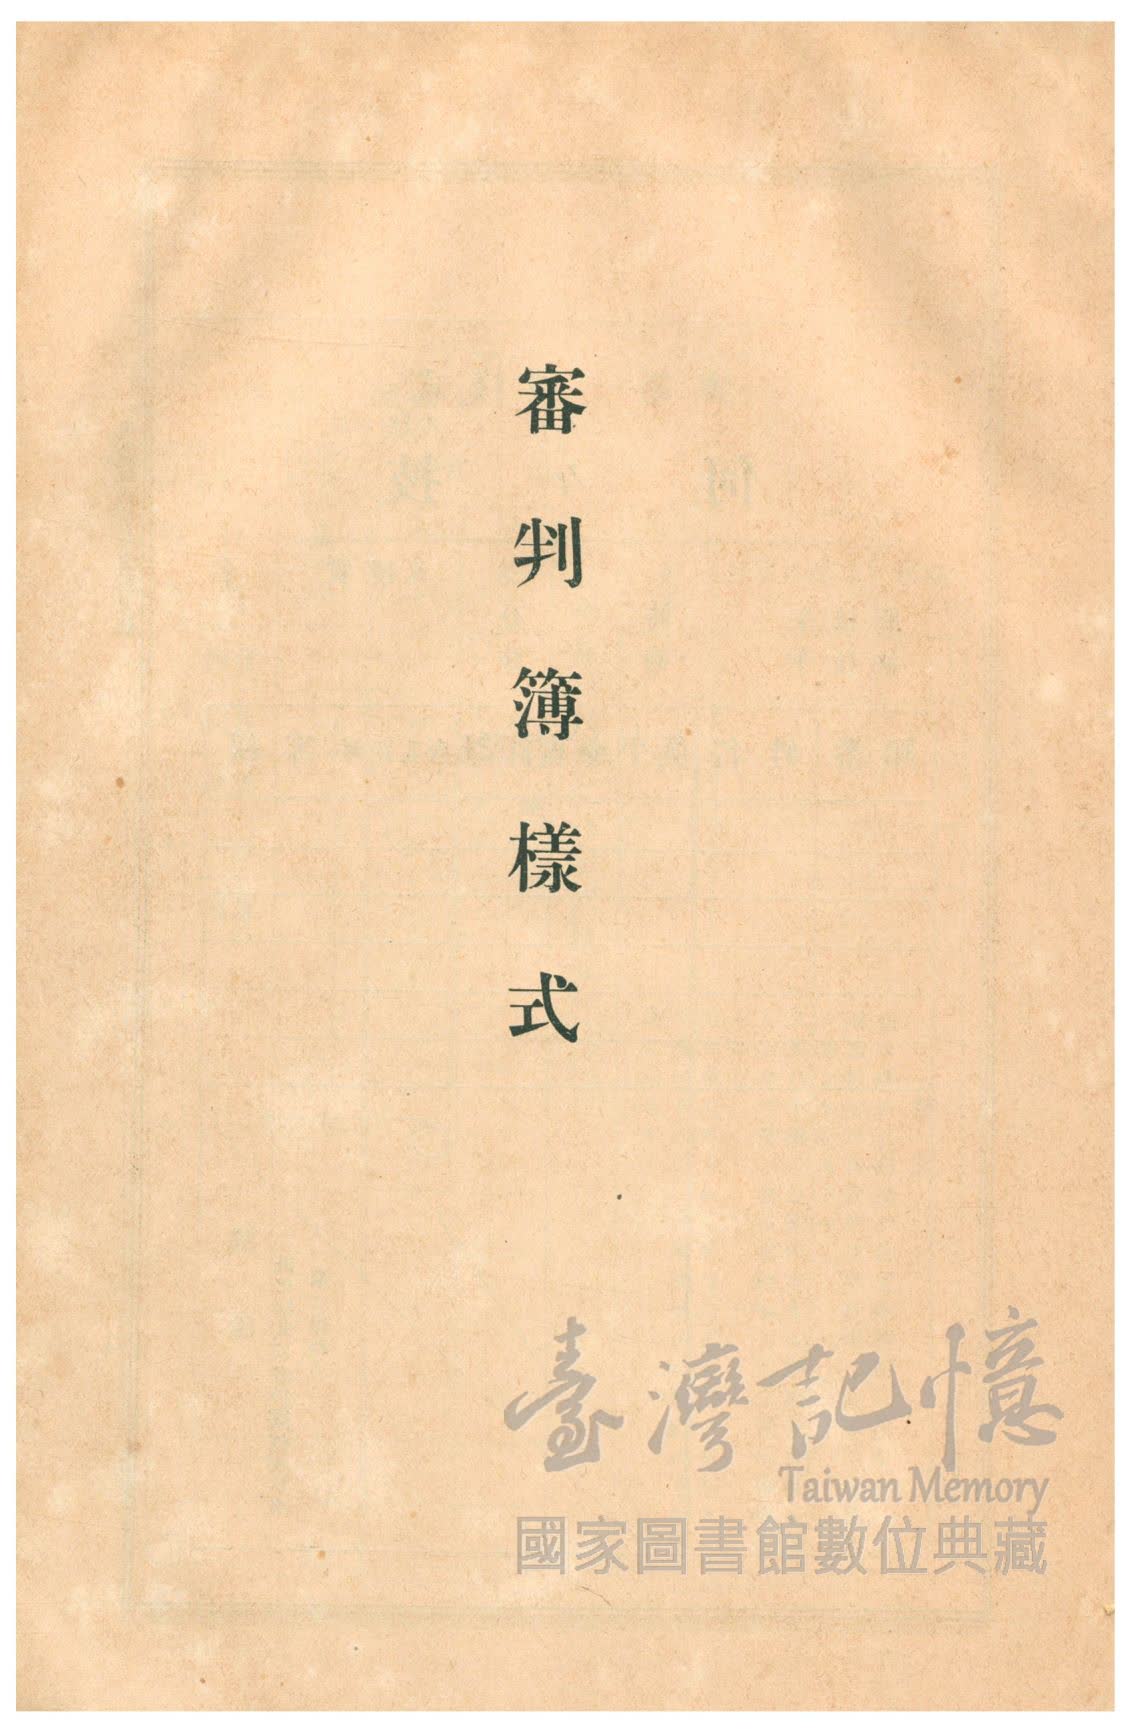 審判簿樣式
臺灣記憶
Taiwan Memory
國家圖書館數位典藏